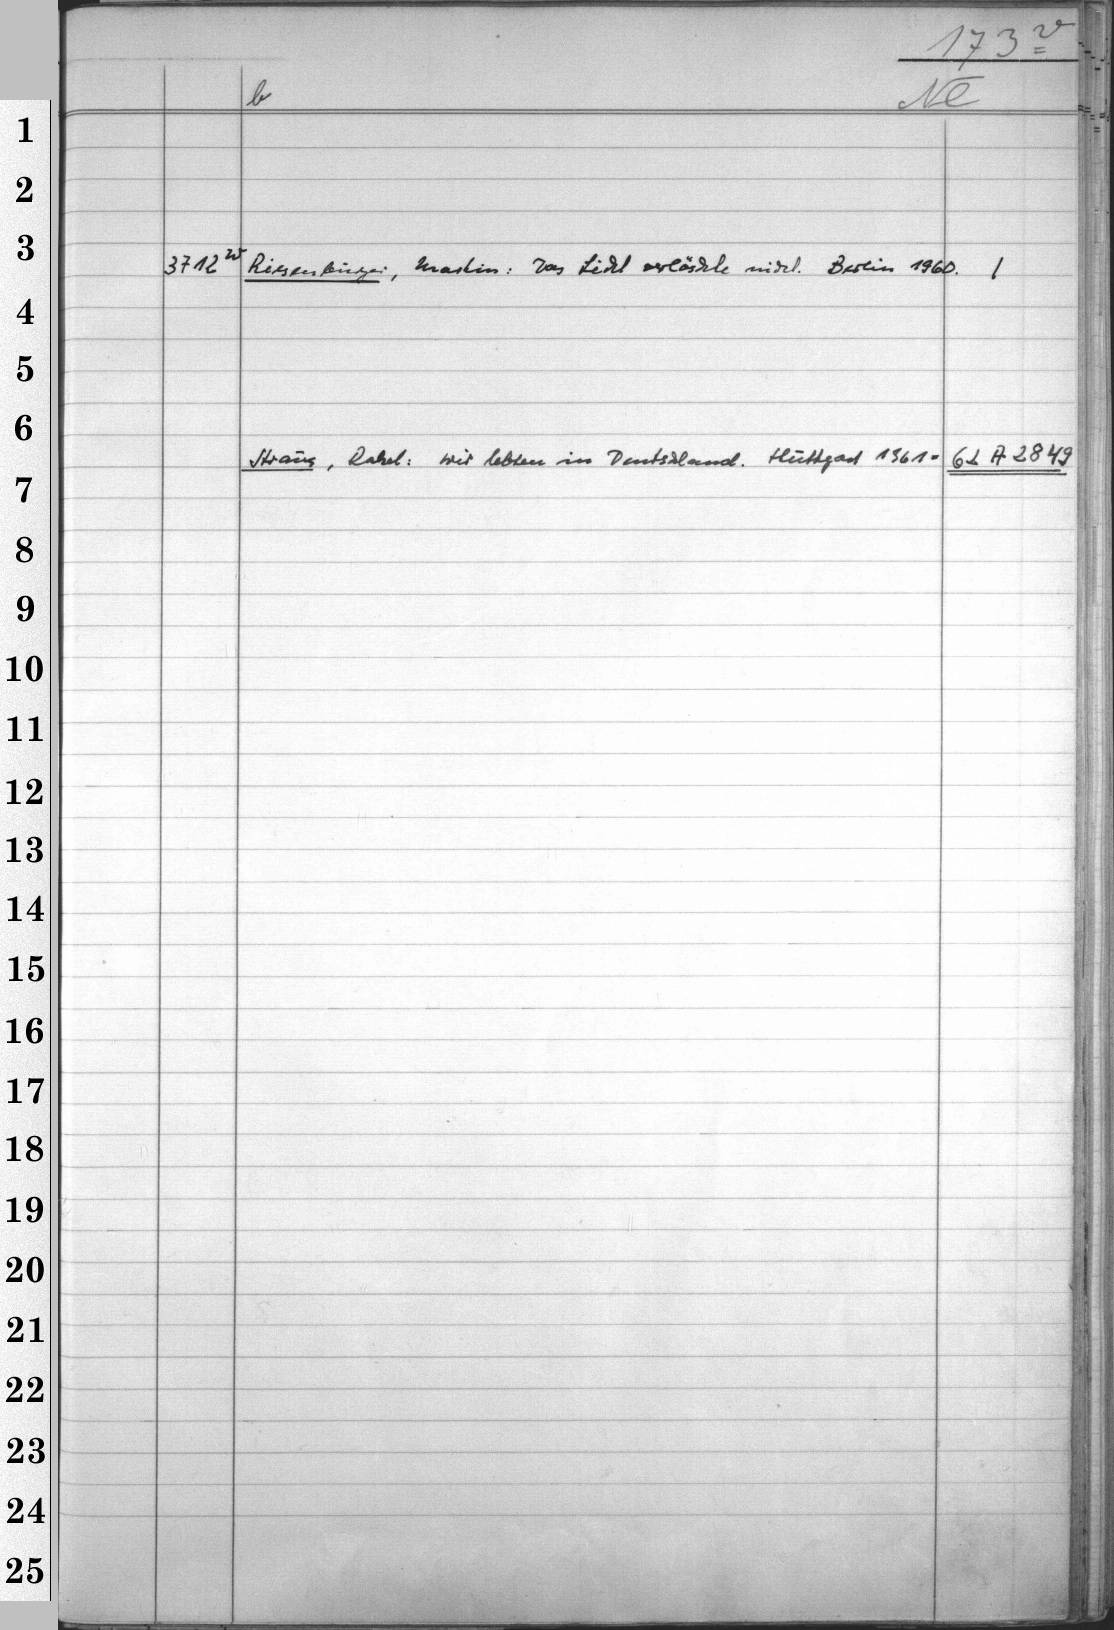 173 v
b
NE
1
2
3
3712 w Riesenburger, Martin: Das Licht verlöschte nicht. Berlin 1960. /
4
5
6
Straus, Rahel: Wir lebten in Deutschland. Stuttgart 1961 = 62 A 2849
7
8
9
10
11
12
13
14
15
16
17
18
19
20
21
22
23
24
25